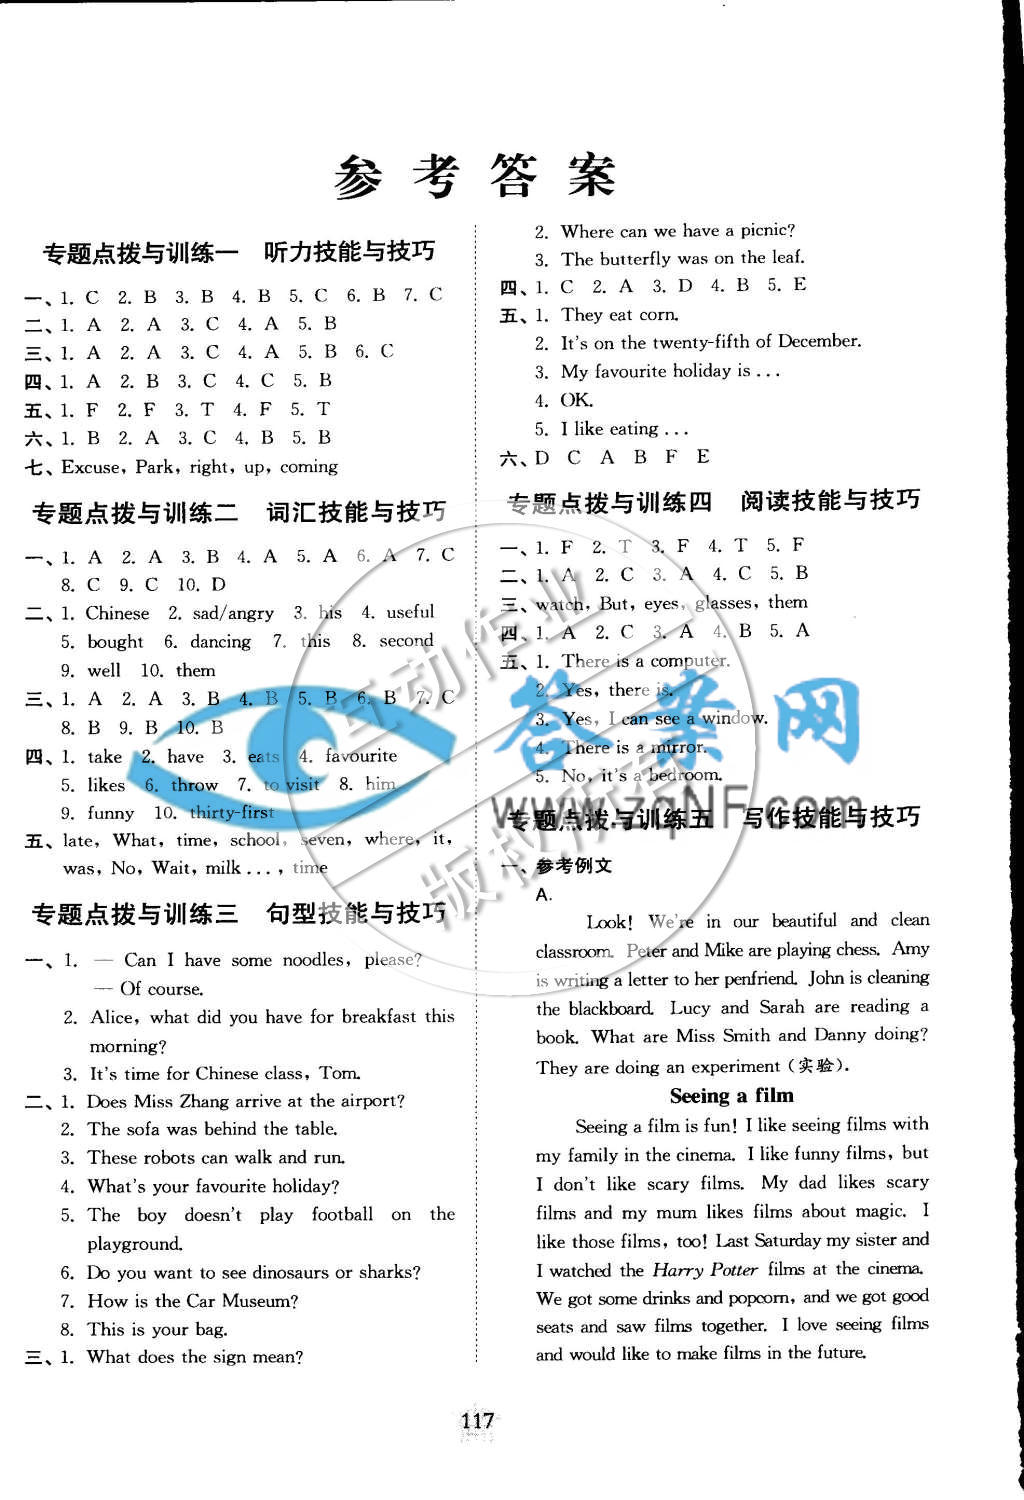 参考答案
专题点拨与训练一 听力技能与技巧
一、1. C 2. B 3. B 4. B 5. C 6. B 7. C
二、1. A 2. A 3. C 4. A 5. B
三、1. A 2. A 3. C 4. A 5. B 6. C
四、1. A 2. B 3. C 4. C 5. B
五、1. F 2. F 3. T 4. F 5. T
六、1. B 2. A 3. C 4. B 5. B
七、Excuse, Park, right, up, coming
专题点拨与训练二 词汇技能与技巧
一、1. A 2. A 3. B 4. A 5. A 6. A 7. C
8. C 9. C 10. D
二、1. Chinese 2. sad/angry 3. his 4. useful
5. bought 6. dancing 7. this 8. second
9. well 10. them
三、1. A 2. A 3. B 4. B 5. B 6. B 7. C
8. B 9. B 10. B
四、1. take 2. have 3. eats 4. favourite
5. likes 6. throw 7. to visit 8. him
9. funny 10. thirty-first
五、late, What, time, school, seven, where, it,
was, No, Wait, milk ..., time
专题点拨与训练三 句型技能与技巧
一、1. — Can I have some noodles, please?
— Of course.
2. Alice, what did you have for breakfast this
morning?
3. It's time for Chinese class, Tom.
二、1. Does Miss Zhang arrive at the airport?
2. The sofa was behind the table.
3. These robots can walk and run.
4. What's your favourite holiday?
5. The boy doesn't play football on the
playground.
6. Do you want to see dinosaurs or sharks?
7. How is the Car Museum?
8. This is your bag.
三、1. What does the sign mean?
2. Where can we have a picnic?
3. The butterfly was on the leaf.
四、1. C 2. A 3. D 4. B 5. E
五、1. They eat corn.
2. It's on the twenty-fifth of December.
3. My favourite holiday is ...
4. OK.
5. I like eating ...
六、D C A B F E
专题点拨与训练四 阅读技能与技巧
一、1. F 2. T 3. F 4. T 5. F
二、1. A 2. C 3. A 4. C 5. B
三、watch, But, eyes, glasses, them
四、1. A 2. C 3. A 4. B 5. A
五、1. There is a computer.
2. Yes, there is.
3. Yes, I can see a window.
4. There is a mirror.
5. No, it's a bedroom.
专题点拨与训练五 写作技能与技巧
一、参考例文
A.
Look! We're in our beautiful and clean
classroom. Peter and Mike are playing chess. Amy
is writing a letter to her penfriend. John is cleaning
the blackboard. Lucy and Sarah are reading a
book. What are Miss Smith and Danny doing?
They are doing an experiment (实验).
Seeing a film
Seeing a film is fun! I like seeing films with
my family in the cinema. I like funny films, but
I don't like scary films. My dad likes scary
films and my mum likes films about magic. I
like those films, too! Last Saturday my sister and
I watched the Harry Potter films at the cinema.
We got some drinks and popcorn, and we got good
seats and saw films together. I love seeing films
and would like to make films in the future.
117
互动作业
版权所有
答案网
www.zqNF.com